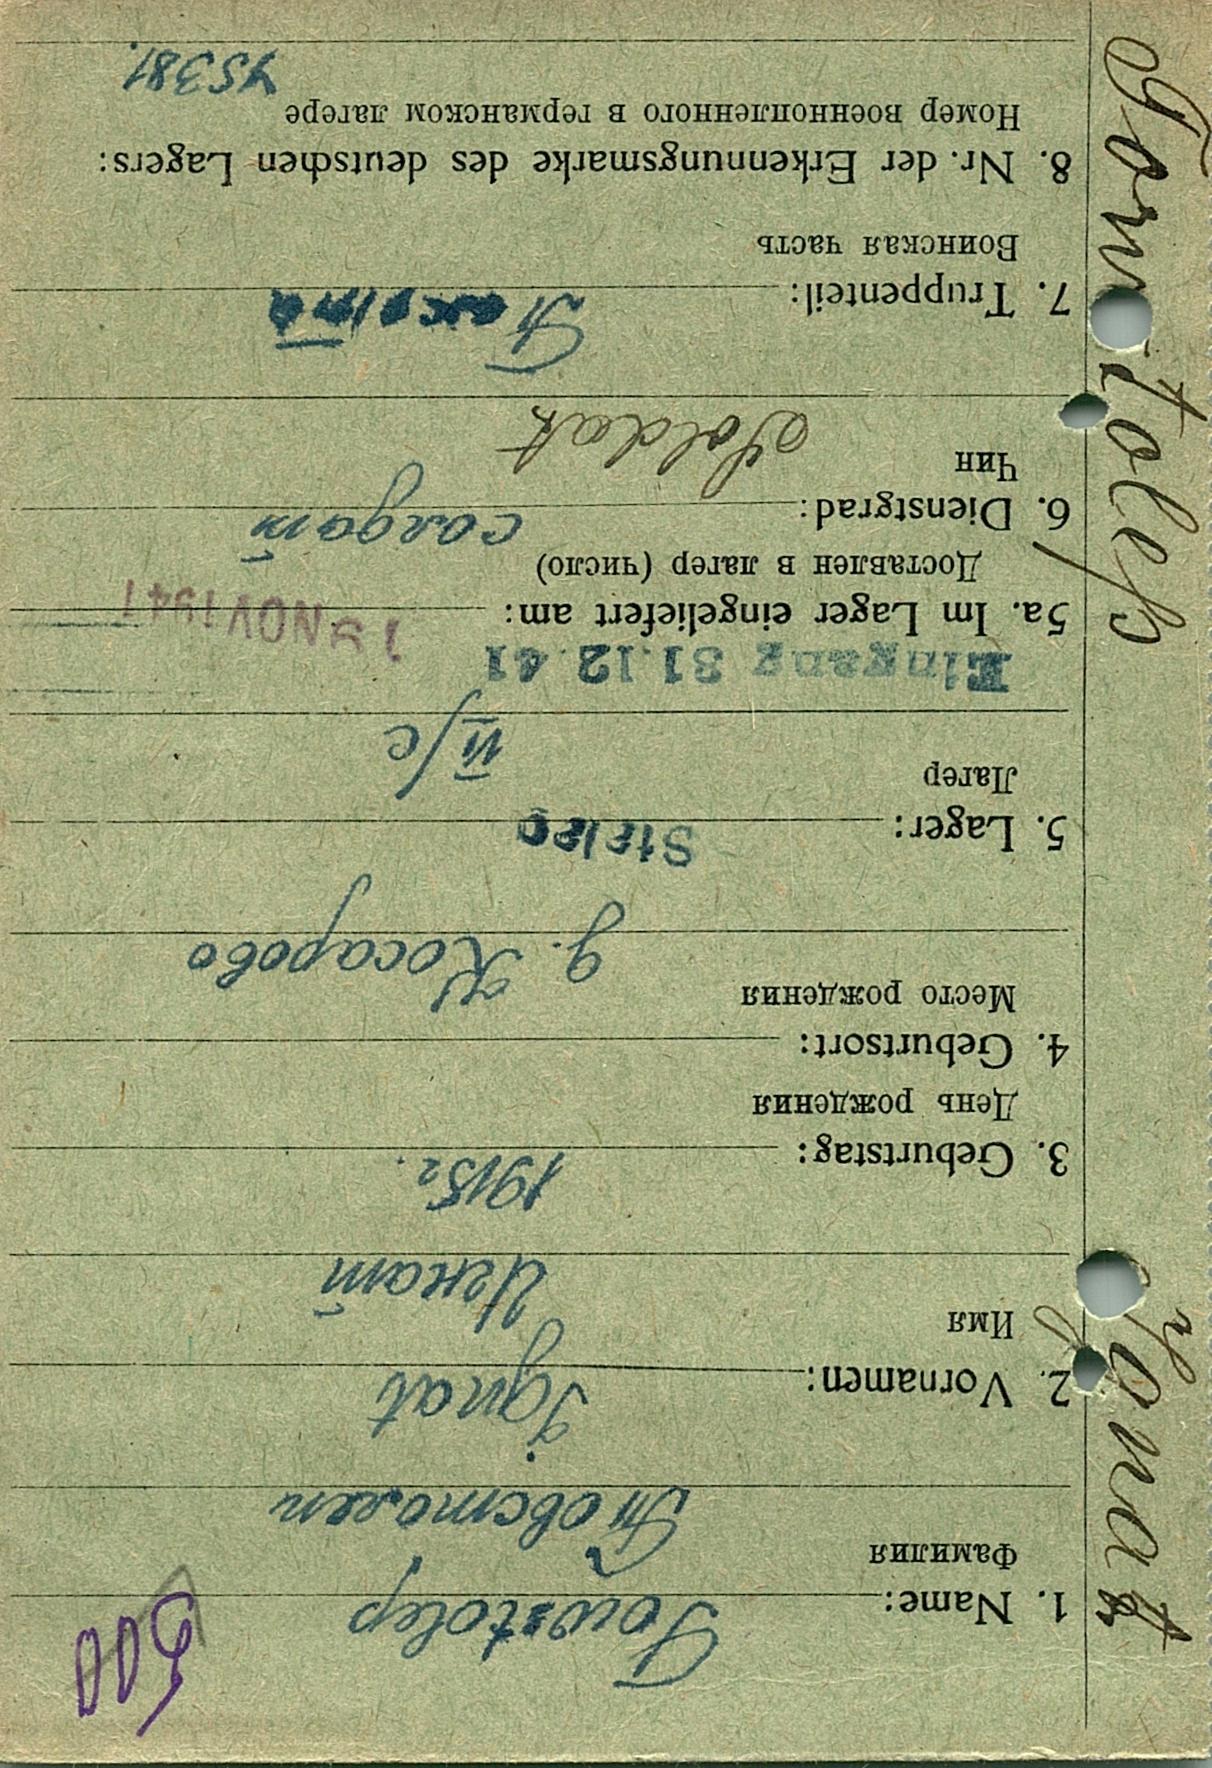 500
1. Name: Towstolep
Фамилия Товстолеп
2. Vornamen: Ignat
Имя Игнат
3. Geburtstag: 1915г.
День рождения
4. Geburtsort:
Место рождения д. Косарово
5. Lager: Stalag
Лагер II/C
Eingang 31.12.41
5a. Im Lager eingeliefert am: 19 NOV 1941
Доставлен в лагер (число)
6. Dienstgrad: солдат
Чин Soldat
7. Truppenteil:
Воинская часть
8. Nr. der Erkennungsmarke des deutschen Lagers:
Номер военнопленного в германском лагере
45381.
Ignat